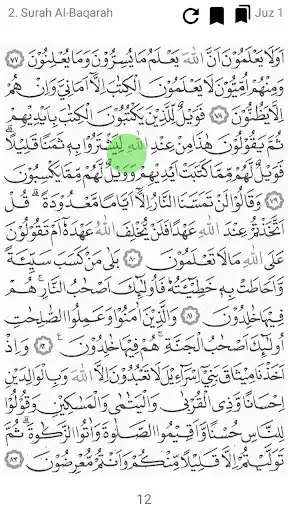 2. Surah Al-Baqarah
Juz 1
اَوَلَا يَعْلَمُوْنَ اَنَّ اللّٰهَ يَعْلَمُ مَا يُسِرُّوْنَ وَمَا يُعْلِنُوْنَ ﴿٧٧﴾
وَمِنْهُمْ اُمِّيُّوْنَ لَا يَعْلَمُوْنَ الْكِتٰبَ اِلَّآ اَمَانِيَّ وَاِنْ هُمْ
اِلَّا يَظُنُّوْنَ ﴿٧٨﴾ فَوَيْلٌ لِلَّذِيْنَ يَكْتُبُوْنَ الْكِتٰبَ بِاَيْدِيْهِمْ
ثُمَّ يَقُوْلُوْنَ هٰذَا مِنْ عِنْدِ اللّٰهِ لِيَشْتَرُوْا بِهٖ ثَمَنًا قَلِيْلًاۗ
فَوَيْلٌ لَهُمْ مِمَّا كَتَبَتْ اَيْدِيْهِمْ وَوَيْلٌ لَهُمْ مِمَّا يَكْسِبُوْنَ
﴿٧٩﴾ وَقَالُوْا لَنْ تَمَسَّنَا النَّارُ اِلَّآ اَيَّامًا مَعْدُوْدَةًۗ قُلْ
اَتَّخَذْتُمْ عِنْدَ اللّٰهِ عَهْدًا فَلَنْ يُخْلِفَ اللّٰهُ عَهْدَهٗٓ اَمْ تَقُوْلُوْنَ
عَلَى اللّٰهِ مَا لَا تَعْلَمُوْنَ ﴿٨٠﴾ بَلٰى مَنْ كَسَبَ سَيِّئَةً
وَاَحَاطَتْ بِهٖ خَطِيْٓئَتُهٗ فَاُولٰٓئِكَ اَصْحَابُ النَّارِۚ هُمْ
فِيْهَا خَالِدُوْنَ ﴿٨١﴾ وَالَّذِيْنَ اٰمَنُوْا وَعَمِلُوا الصَّالِحَاتِ
اُولٰٓئِكَ اَصْحَابُ الْجَنَّةِۚ هُمْ فِيْهَا خَالِدُوْنَ ﴿٨٢﴾ وَاِذْ
اَخَذْنَا مِيْثَاقَ بَنِيْٓ اِسْرَآءِيْلَ لَا تَعْبُدُوْنَ اِلَّا اللّٰهَ وَبِالْوَالِدَيْنِ
اِحْسَانًا وَذِي الْقُرْبٰى وَالْيَتَامٰى وَالْمَسَاكِيْنِ وَقُوْلُوْا
لِلنَّاسِ حُسْنًا وَاَقِيْمُوا الصَّلٰوةَ وَاٰتُوا الزَّكٰوةَۗ ثُمَّ
تَوَلَّيْتُمْ اِلَّا قَلِيْلًا مِنْكُمْ وَاَنْتُمْ مُعْرِضُوْنَ ﴿٨٣﴾
12